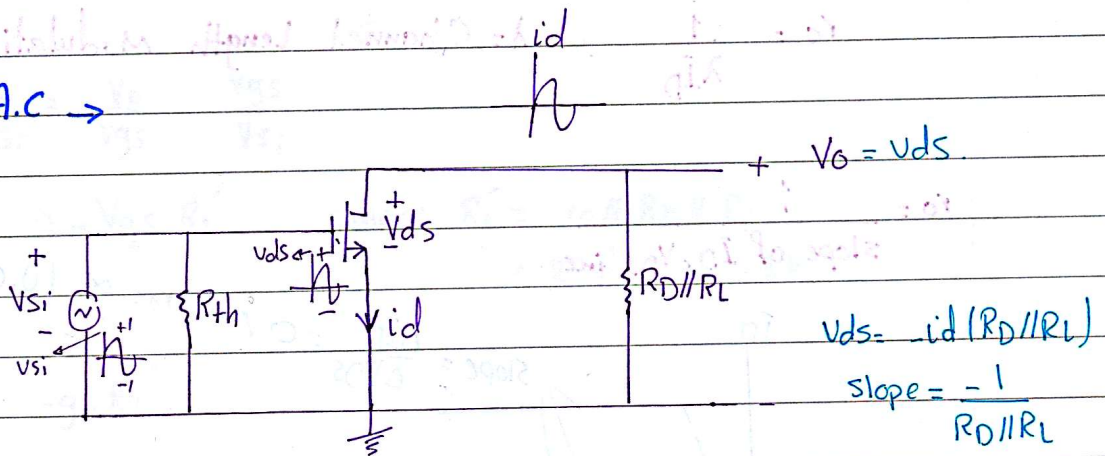 id
A.C →
+ Vo = Vds.
+
Vds
-
+
Vsi
-
vsi
+1
-1
Rth
vds
+
-
id
RD//RL
Vds = -id (RD//RL)
slope = -1
RD//RL